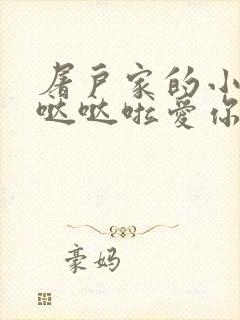 屠户家的小
哒哒啦爱你
豪妈